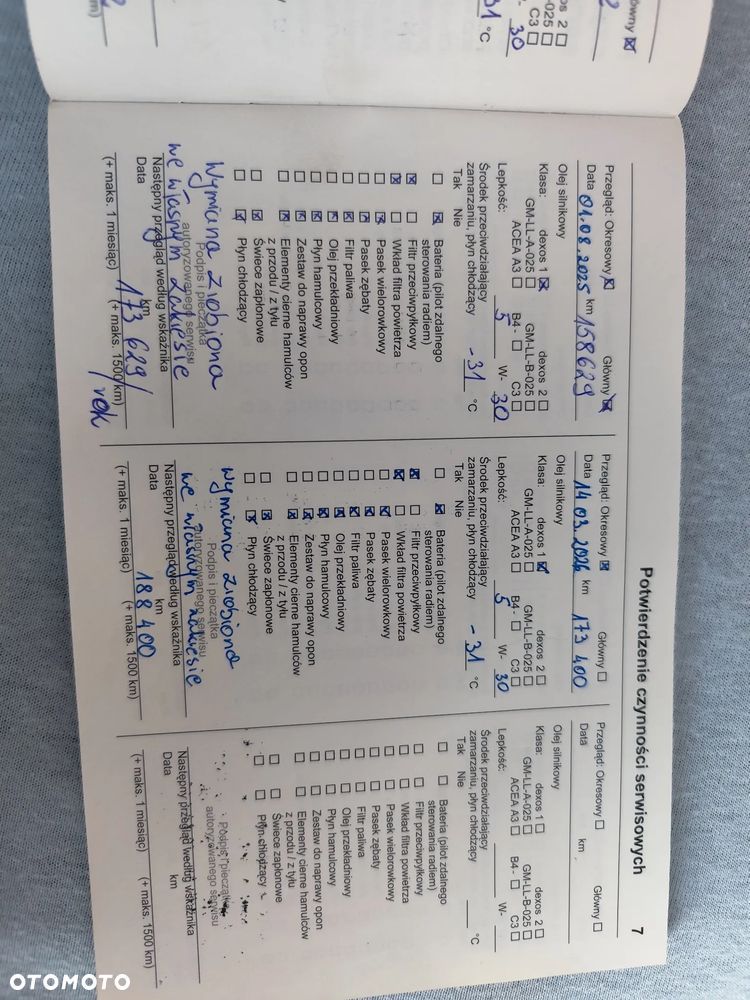 Potwierdzenie czynności serwisowych 7
Przegląd: Okresowy ☒ Główny ☒
Data 01.08.2025 km 158629
Olej silnikowy
Klasa: dexos 1 ☒ dexos 2 ☐
GM-LL-A-025 ☐ GM-LL-B-025 ☐
ACEA A3 ☐ B4- ☐ C3 ☐
Lepkość: 5 W- 30
Środek przeciwdziałający
zamarzaniu, płyn chłodzący -31 °C
Tak Nie
☐ ☒ Bateria (pilot zdalnego
sterowania radiem)
☒ ☐ Filtr przeciwpyłkowy
☒ ☐ Wkład filtra powietrza
☐ ☒ Pasek wielorowkowy
☐ ☒ Pasek zębaty
☐ ☒ Filtr paliwa
☐ ☒ Olej przekładniowy
☐ ☒ Płyn hamulcowy
☐ ☒ Zestaw do naprawy opon
☐ ☒ Elementy cierne hamulców
z przodu / z tyłu
☐ ☒ Świece zapłonowe
☐ ☒ Płyn chłodzący
Wymiana zrobiona
Podpis i pieczątka
autoryzowanego serwisu
we własnym zakresie
Następny przegląd według wskaźnika
Data km
173 629/
rok
(+ maks. 1 miesiąc) (+ maks. 1500 km)
Przegląd: Okresowy ☒ Główny ☐
Data 14 03. 2026 km 173 400
Olej silnikowy
Klasa: dexos 1 ☒ dexos 2 ☐
GM-LL-A-025 ☐ GM-LL-B-025 ☐
ACEA A3 ☐ B4- ☐ C3 ☐
Lepkość: 5 W- 30
Środek przeciwdziałający
zamarzaniu, płyn chłodzący -31 °C
Tak Nie
☐ ☒ Bateria (pilot zdalnego
sterowania radiem)
☒ ☐ Filtr przeciwpyłkowy
☒ ☐ Wkład filtra powietrza
☐ ☒ Pasek wielorowkowy
☐ ☒ Pasek zębaty
☐ ☒ Filtr paliwa
☐ ☒ Olej przekładniowy
☐ ☒ Płyn hamulcowy
☐ ☒ Zestaw do naprawy opon
☐ ☒ Elementy cierne hamulców
z przodu / z tyłu
☐ ☒ Świece zapłonowe
☐ ☒ Płyn chłodzący
Wymiana zrobiona
Podpis i pieczątka
autoryzowanego serwisu
we własnym zakresie
Następny przegląd według wskaźnika
Data km
188 400
(+ maks. 1 miesiąc) (+ maks. 1500 km)
Przegląd: Okresowy ☐ Główny ☐
Data km
Olej silnikowy
Klasa: dexos 1 ☐ dexos 2 ☐
GM-LL-A-025 ☐ GM-LL-B-025 ☐
ACEA A3 ☐ B4- ☐ C3 ☐
Lepkość: W-
Środek przeciwdziałający
zamarzaniu, płyn chłodzący °C
Tak Nie
☐ ☐ Bateria (pilot zdalnego
sterowania radiem)
☐ ☐ Filtr przeciwpyłkowy
☐ ☐ Wkład filtra powietrza
☐ ☐ Pasek wielorowkowy
☐ ☐ Pasek zębaty
☐ ☐ Filtr paliwa
☐ ☐ Olej przekładniowy
☐ ☐ Płyn hamulcowy
☐ ☐ Zestaw do naprawy opon
☐ ☐ Elementy cierne hamulców
z przodu / z tyłu
☐ ☐ Świece zapłonowe
☐ ☐ Płyn chłodzący
Podpis i pieczątka
autoryzowanego serwisu
Następny przegląd według wskaźnika
Data km
(+ maks. 1 miesiąc) (+ maks. 1500 km)
OTOMOTO